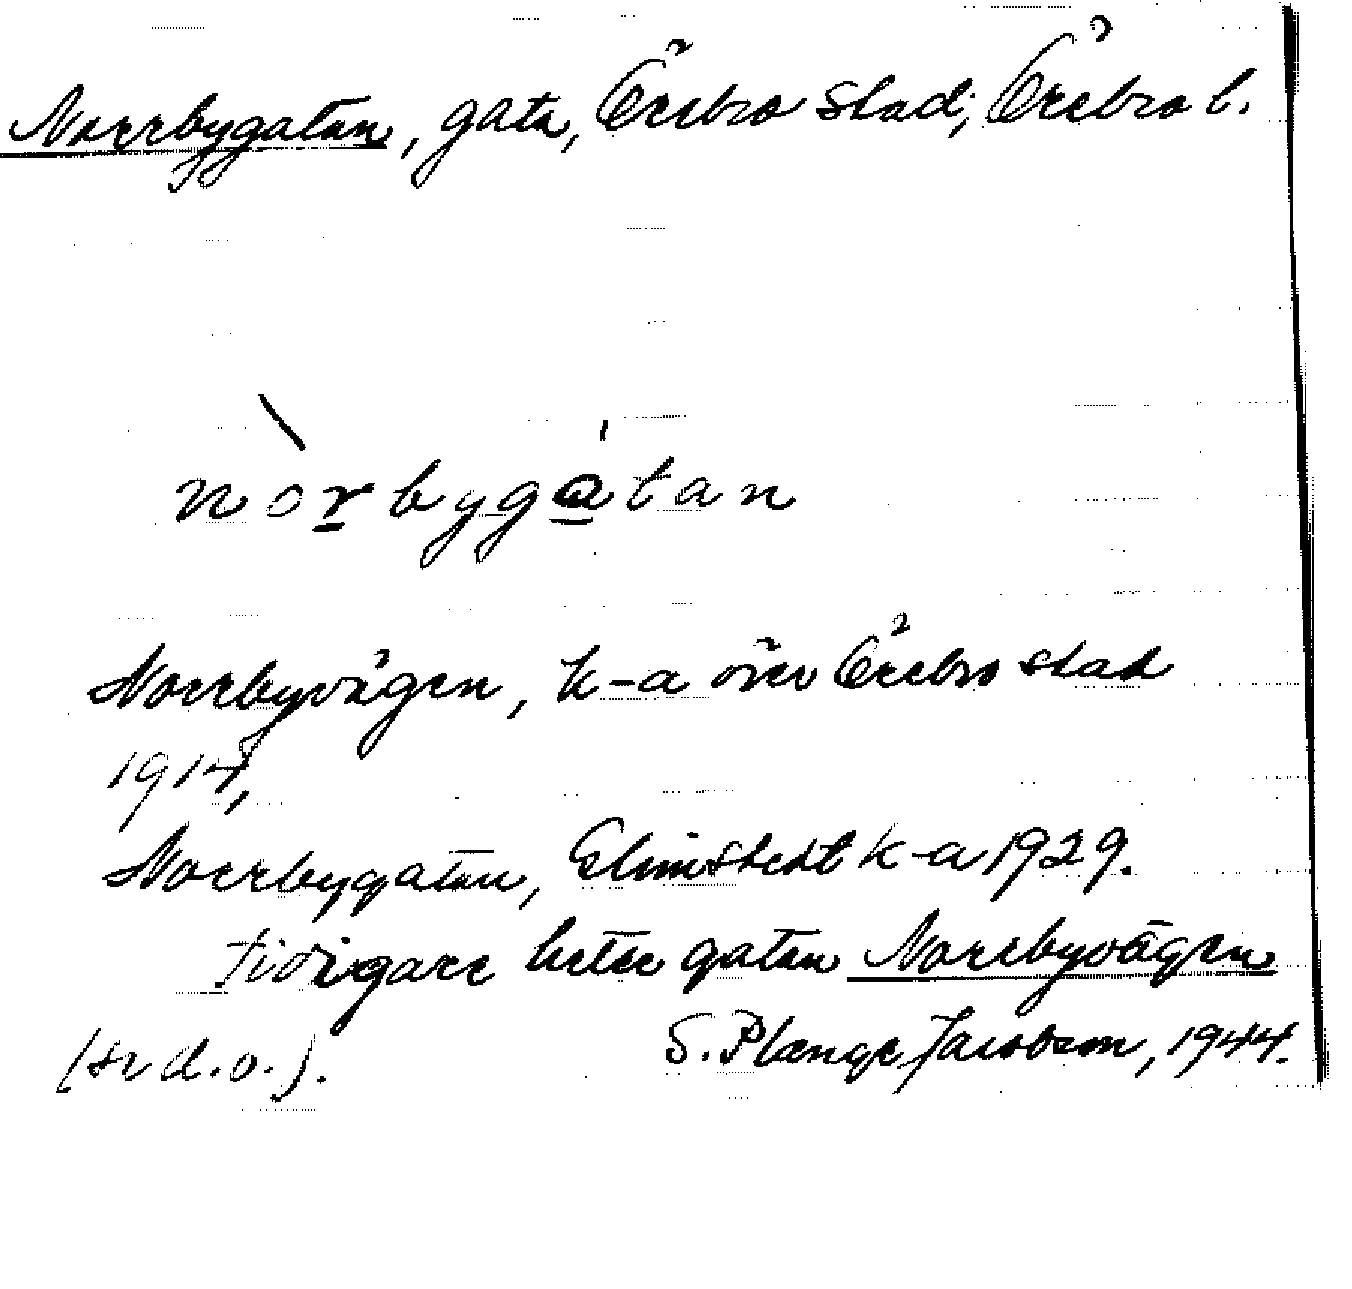 Norrbygatan, gata, Örebro stad, Örebro l.
nòrbygátan
Norrbyvägen, k-a över Örebro stad
1914,
Norrbygatan, Elmstedt k-a 1929.
tidigare heter gatan Norrbyvägen
(se d.o.). S. Plænge Jacobson, 1944.